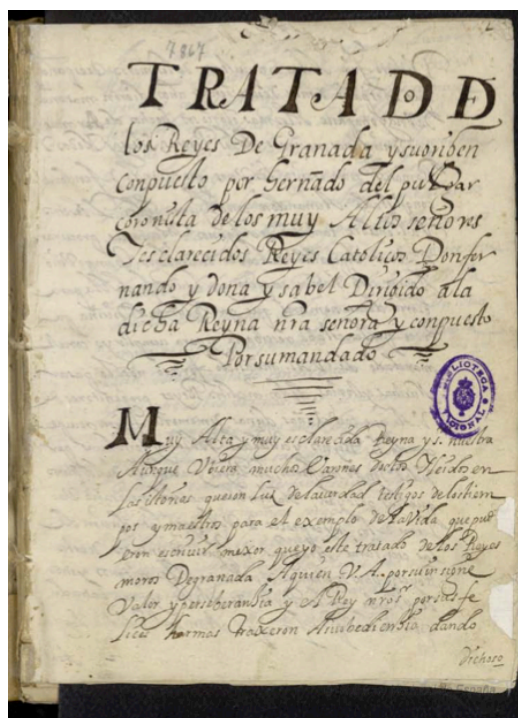 7867
TRATADO DE
los Reyes De Granada y su origen
conpuesto por hernãdo del pulgar
coronista de los muy Altos señores
Y esclarecidos Reyes Catolicos Don fer
nando y dona ysabel Dirigido ala
dicha Reyna nr̃a señora y conpuesto
Por su mandado
BIBLIOTECA
NACIONAL
Muy Alta y muy esclarecida Reyna y s. nuestra
Aunque Vbiera muchos Varones doctos leidos en
las istorias que son luz dela verdad testigos de los tiem
pos y maestros para el exemplo de la vida que pud
eron escriuir mexor que yo este tratado de los Reyes
moros De granada A quien V. A. por su insigne
Valor y perseberansia y el Rey nr̃o s.r por sus fe
lices Armas traxeron a su bediensia dando
dichoso